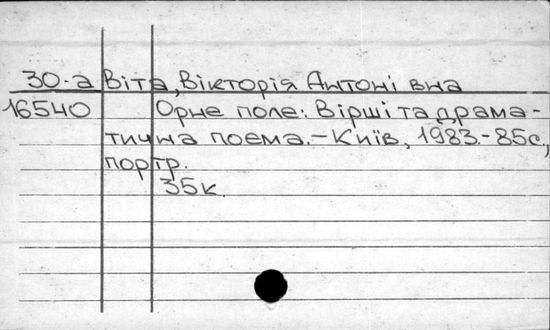 30-а Віта, Вікторія Антонівна
16540 Орне поле: Вірші та драма-
тична поема.-Київ, 1983.-85с.,
портр.
35к.